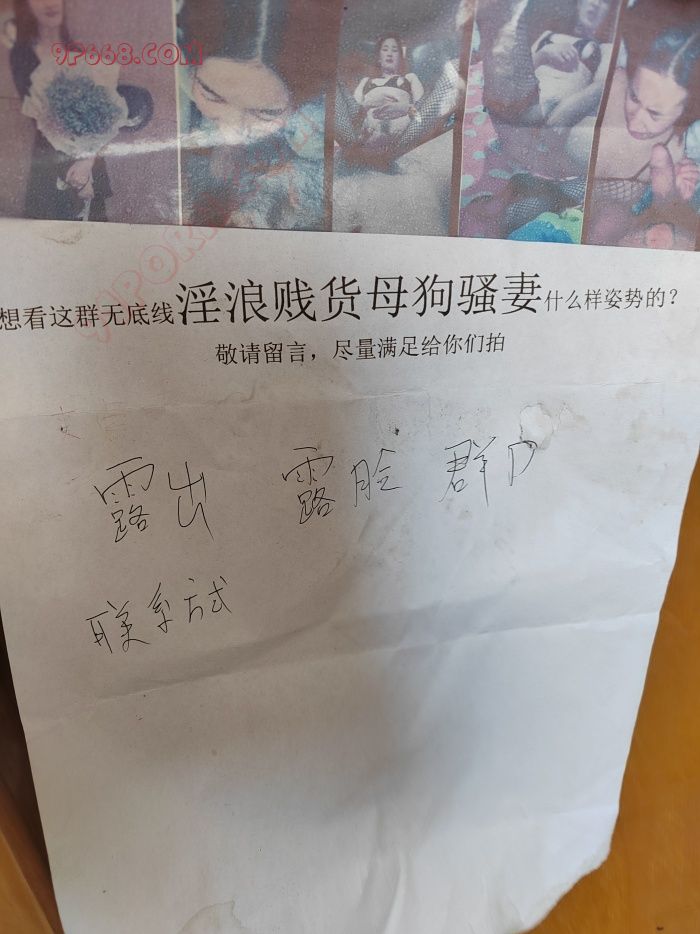 9P668.COM
想看这群无底线淫浪贱货母狗骚妻什么样姿势的?
敬请留言，尽量满足给你们拍
露出 露脸 群P
联系方式